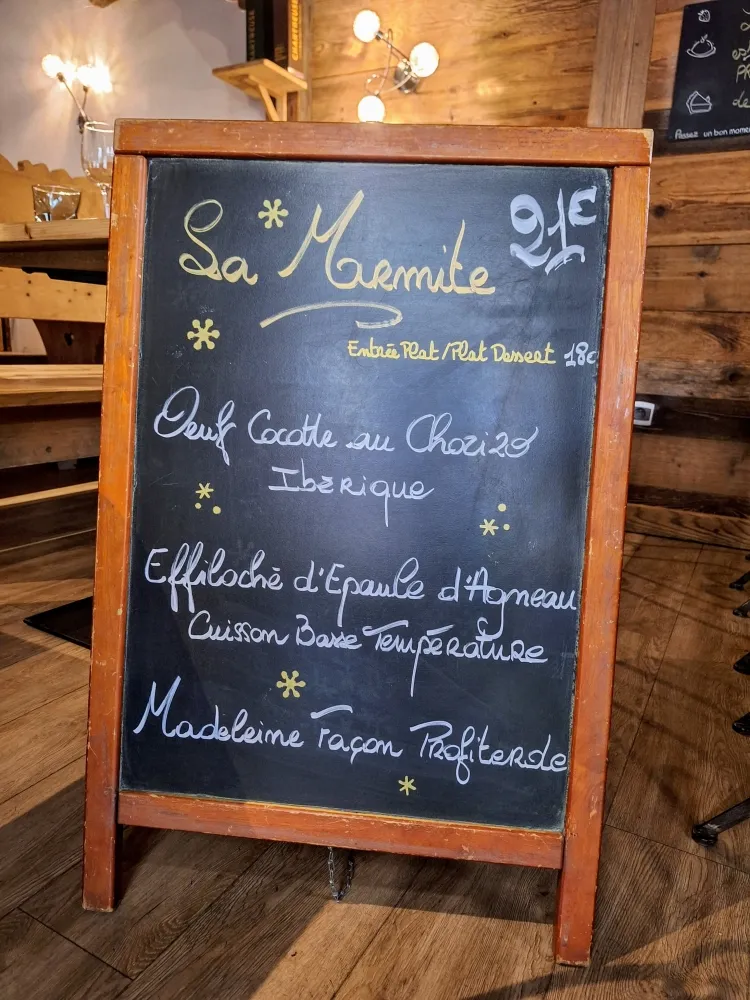 La Marmite
21€
Entrée Plat / Plat Dessert 18€
Oeuf Cocotte au Chorizo
Ibérique
Effiloché d'Epaule d'Agneau
Cuisson Basse Température
Madeleine Façon Profiterole
Passez un bon mome